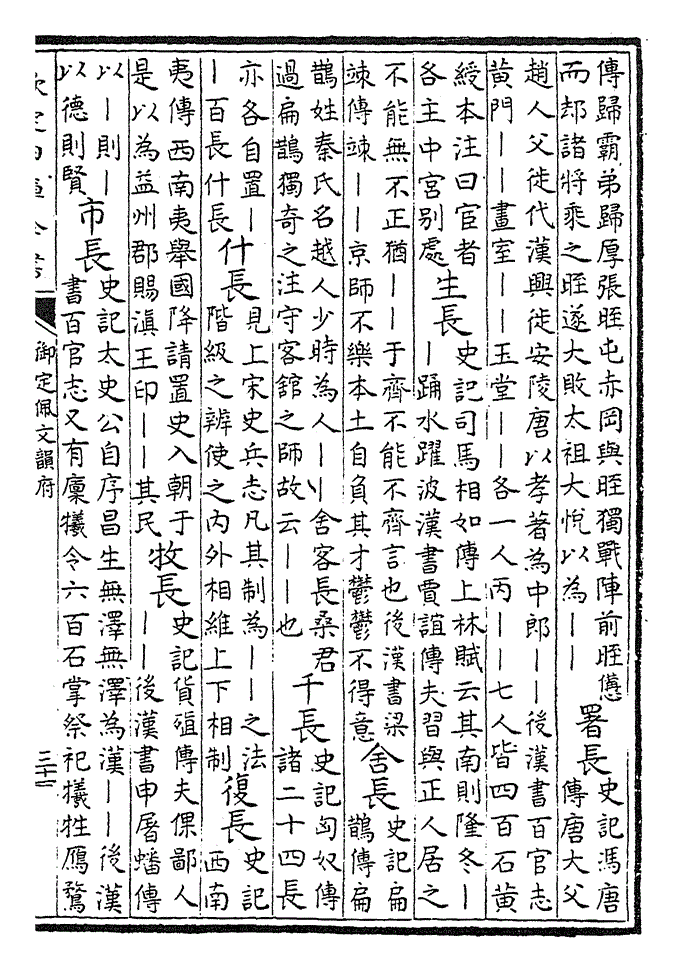 傳歸霸弟歸厚張眰屯赤岡與眰獨戰陣前眰憊
而却諸將乘之眰遂大敗太祖大悅以為｜｜
署長
史記馮唐
傳唐大父
趙人父徙代漢興徙安陵唐以孝著為中郎｜｜後漢書百官志
黃門｜｜畫室｜｜玉堂｜｜各一人丙｜｜七人皆四百石黃
綬本注曰宦者
各主中宮別處
生長
史記司馬相如傳上林賦云其南則隆冬｜
｜踊水躍波漢書賈誼傳夫習與正人居之
不能無不正猶｜｜于齊不能不齊言也後漢書梁
竦傳竦｜｜京師不樂本土自負其才鬱鬱不得意
舍長
史記扁
鵲傳扁
鵲姓秦氏名越人少時為人｜｜舍客長桑君
過扁鵲獨奇之注守客舘之師故云｜｜也
千長
史記匈奴傳
諸二十四長
亦各自置｜
｜百長什長
什長
見上宋史兵志凡其制為｜｜之法
階級之辨使之內外相維上下相制
復長
史記
西南
夷傳西南夷舉國降請置史入朝于
是以為益州郡賜滇王印｜｜其民
牧長
史記貨殖傳夫倮鄙人
｜｜後漢書申屠蟠傳
以｜則｜
以德則賢
市長
史記太史公自序昌生無澤無澤為漢｜｜後漢
書百官志又有廩犧令六百石掌祭祀犧牲鴈鶩
欽定四庫全書
御定佩文韻府
三十一